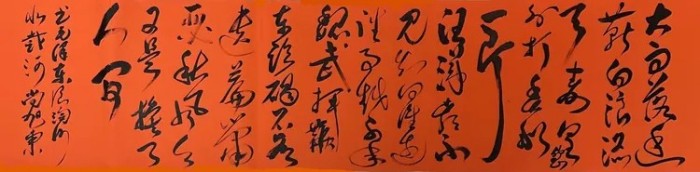 大雨落幽
燕白浪滔
天秦皇岛
外打鱼船
一片
汪洋都不
见知向谁边
往事越千年
魏武挥鞭
东临碣石有
遗篇萧
瑟秋风今
又是换了
人间
书毛泽东浪淘沙
北戴河 尚旭东